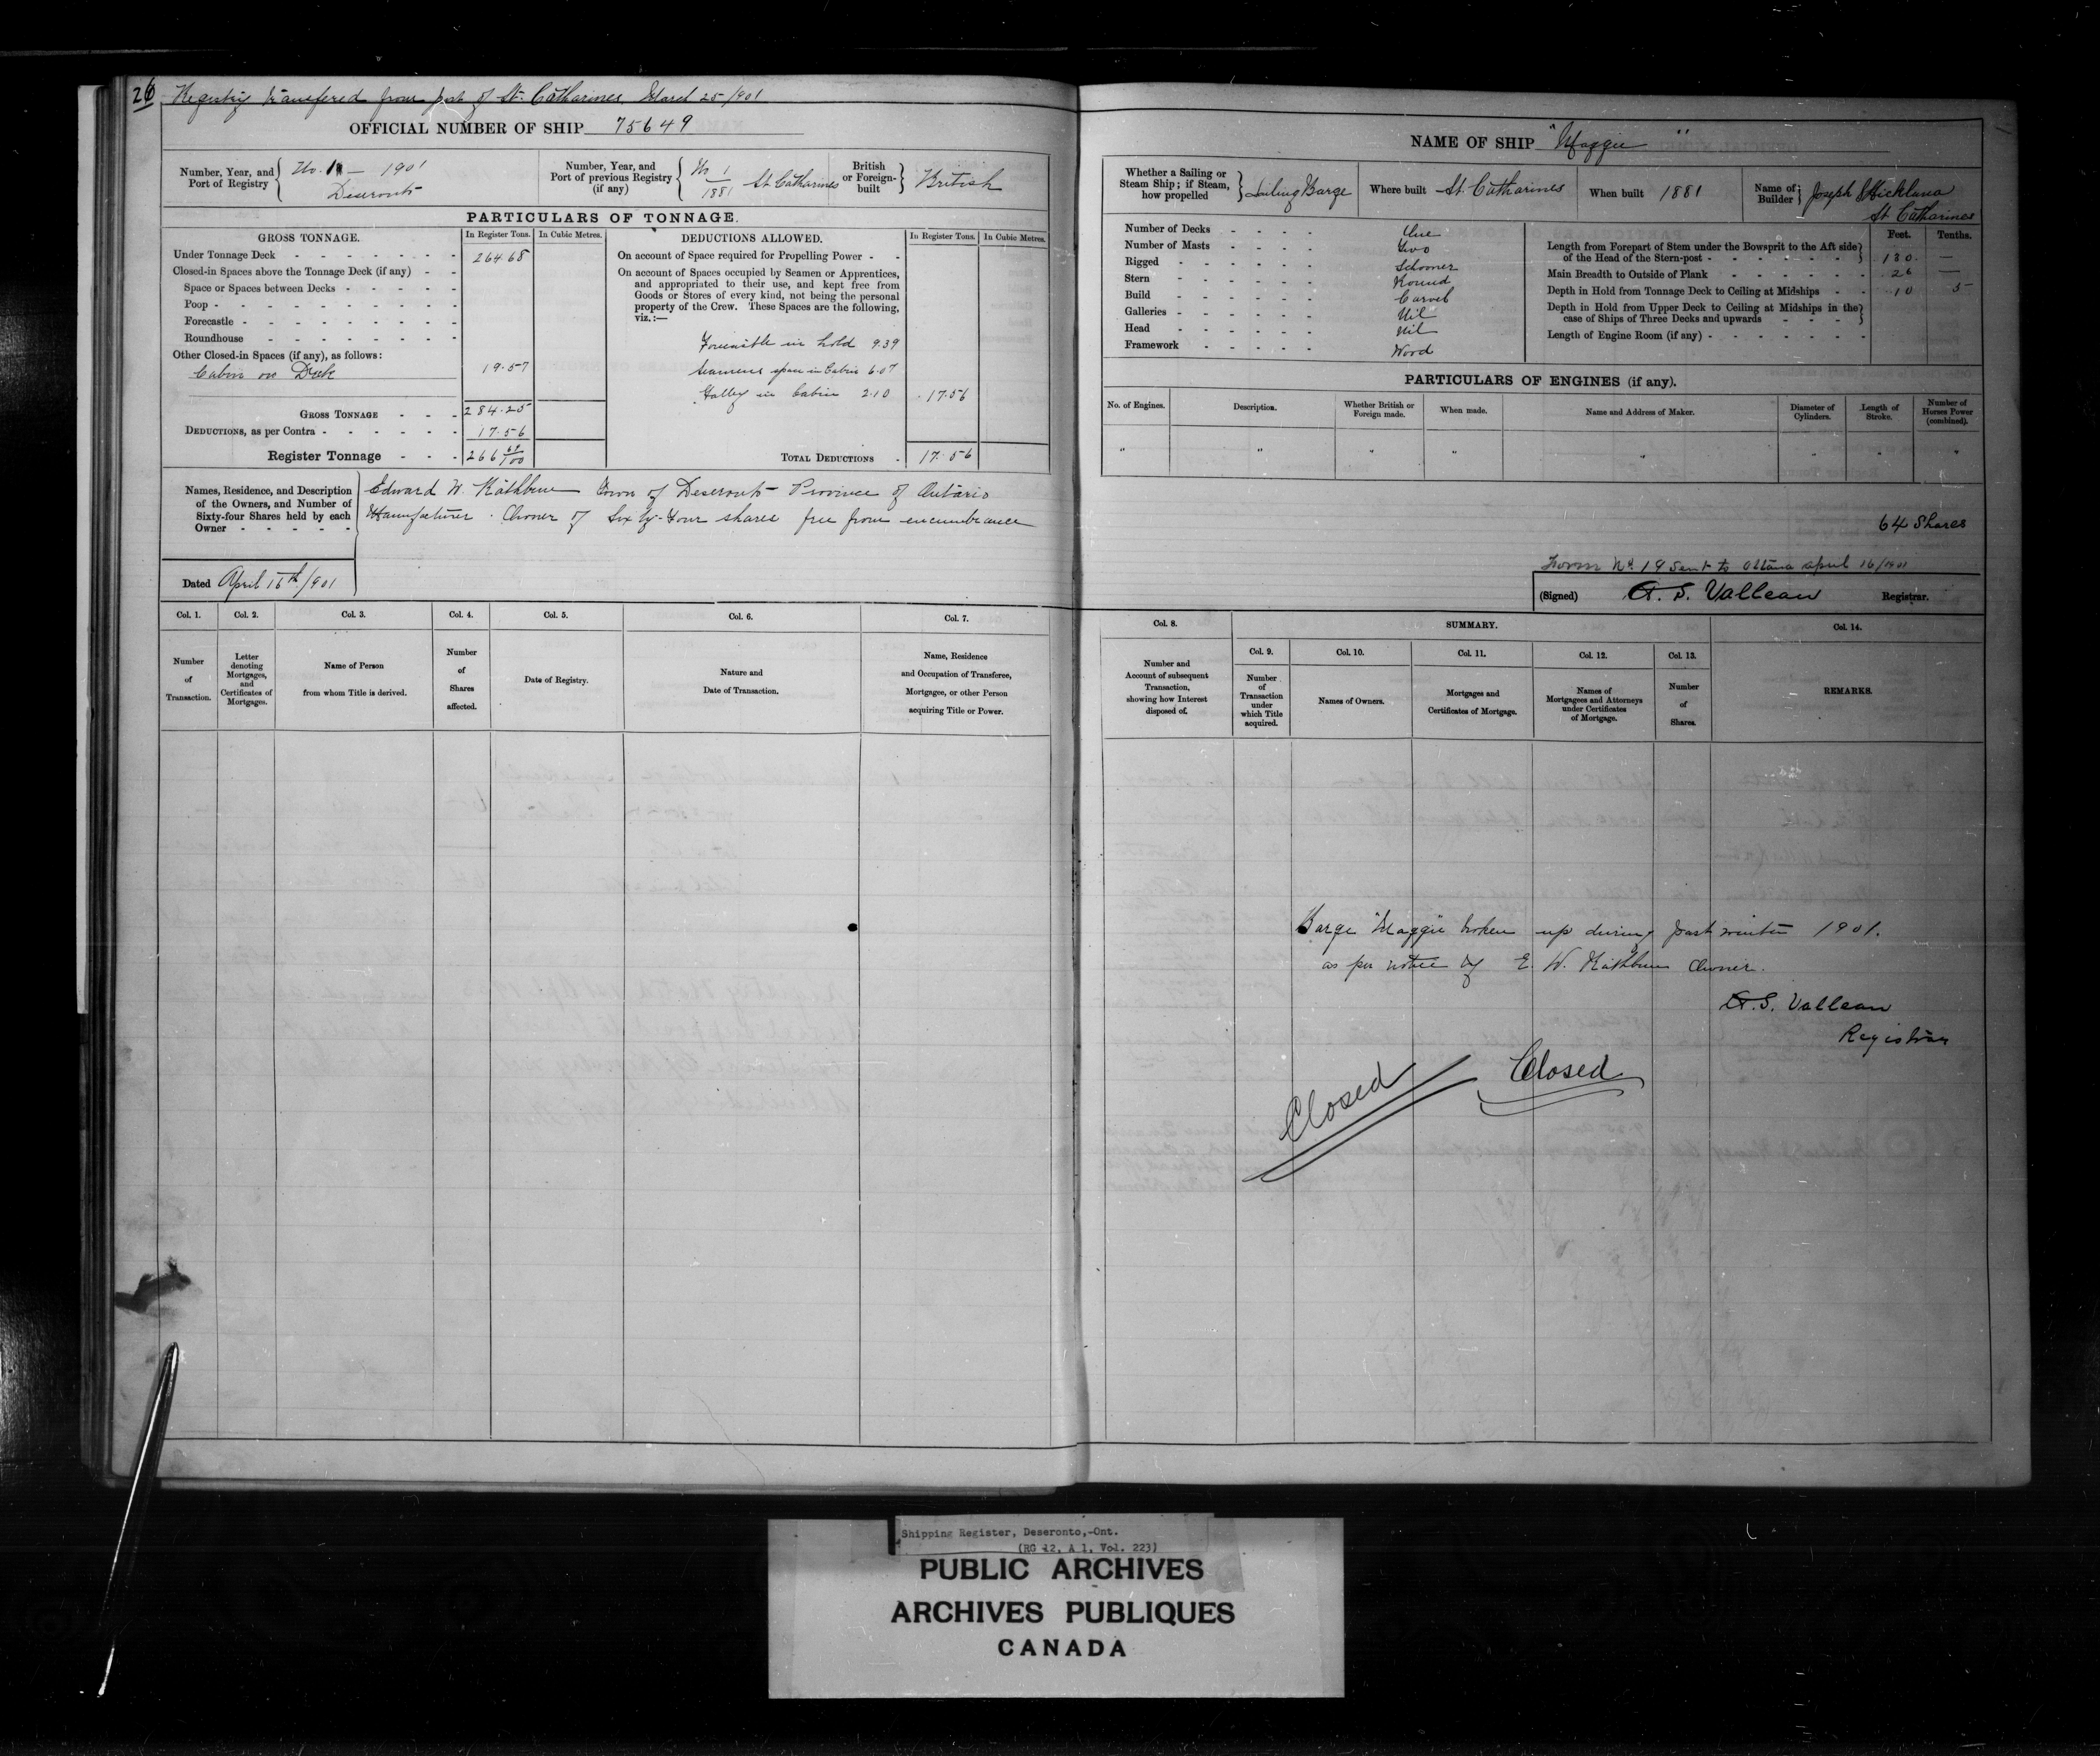 26
Registry transfered from port of St. Catharines, March 25/901
OFFICIAL NUMBER OF SHIP 75649
Number, Year, and Port of Registry
No. 1 — 1901
Deseronto
Number, Year, and Port of previous Registry (if any)
No 1
1881
St. Catharines
British or Foreign-built
British
PARTICULARS OF TONNAGE.
GROSS TONNAGE.
In Register Tons.
In Cubic Metres.
DEDUCTIONS ALLOWED.
In Register Tons.
In Cubic Metres.
Under Tonnage Deck 264.68
Closed-in Spaces above the Tonnage Deck (if any)
Space or Spaces between Decks
Poop
Forecastle
Roundhouse
Other Closed-in Spaces (if any), as follows:
Cabin on Deck 19.57
GROSS TONNAGE 284.25
DEDUCTIONS, as per Contra 17.56
Register Tonnage 266 69/100
On account of Space required for Propelling Power
On account of Spaces occupied by Seamen or Apprentices,
and appropriated to their use, and kept free from
Goods or Stores of every kind, not being the personal
property of the Crew. These Spaces are the following,
viz.:—
Forecastle in hold 9.39
Seamens space in Cabin 6.07
Galley in Cabin 2.10 17.56
TOTAL DEDUCTIONS 17.56
Names, Residence, and Description
of the Owners, and Number of
Sixty-four Shares held by each
Owner
Edward W. Rathbun Town of Deseronto Province of Ontario
Manufacturer. Owner of Sixty-Four shares free from encumbrance
Dated April 16th/901
Col. 1.
Number of Transaction.
Col. 2.
Letter denoting Mortgages, and Certificates of Mortgages.
Col. 3.
Name of Person from whom Title is derived.
Col. 4.
Number of Shares affected.
Col. 5.
Date of Registry.
Col. 6.
Nature and Date of Transaction.
Col. 7.
Name, Residence and Occupation of Transferee, Mortgagee, or other Person acquiring Title or Power.
NAME OF SHIP "Maggie"
Whether a Sailing or Steam Ship; if Steam, how propelled
Sailing Barge
Where built St. Catharines
When built 1881
Name of Builder
Joseph
St Catharines
Number of Decks One
Number of Masts Two
Rigged Schooner
Stern Round
Build Carvel
Galleries Nil
Head Nil
Framework Wood
Feet. Tenths.
Length from Forepart of Stem under the Bowsprit to the Aft side
of the Head of the Stern-post 130. —
Main Breadth to Outside of Plank 26 —
Depth in Hold from Tonnage Deck to Ceiling at Midships 10 5
Depth in Hold from Upper Deck to Ceiling at Midships in the
case of Ships of Three Decks and upwards
Length of Engine Room (if any)
PARTICULARS OF ENGINES (if any).
No. of Engines.
Description.
Whether British or Foreign made.
When made.
Name and Address of Maker.
Diameter of Cylinders.
Length of Stroke.
Number of Horses Power (combined).
" " " " " " " "
64 Shares
Form No. 19 sent to Ottawa april 16/1901
(Signed) A. S. Valleau Registrar.
Col. 8.
Number and Account of subsequent Transaction, showing how Interest disposed of.
SUMMARY.
Col. 9.
Number of Transaction under which Title acquired.
Col. 10.
Names of Owners.
Col. 11.
Mortgages and Certificates of Mortgage.
Col. 12.
Names of Mortgagees and Attorneys under Certificates of Mortgage.
Col. 13.
Number of Shares.
Col. 14.
REMARKS.
Barge "Maggie" broken up during past winter 1901.
as per notice by E. W. Rathbun Owner.
A. S. Valleau
Registrar
Closed
Closed
Shipping Register, Deseronto,-Ont.
(RG 12, A 1, Vol. 223)
PUBLIC ARCHIVES
ARCHIVES PUBLIQUES
CANADA